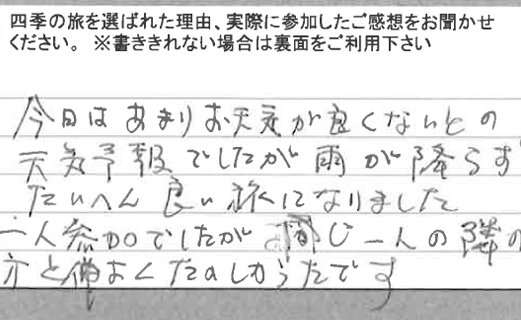 四季の旅を選ばれた理由、実際に参加したご感想をお聞かせ
ください。 ※書ききれない場合は裏面をご利用下さい
今日はあまりお天気が良くないとの
天気予報でしたが雨が降らず
たいへん良い旅になりました
一人参加でしたが同じ一人の隣の
方と仲よくたのしかったです